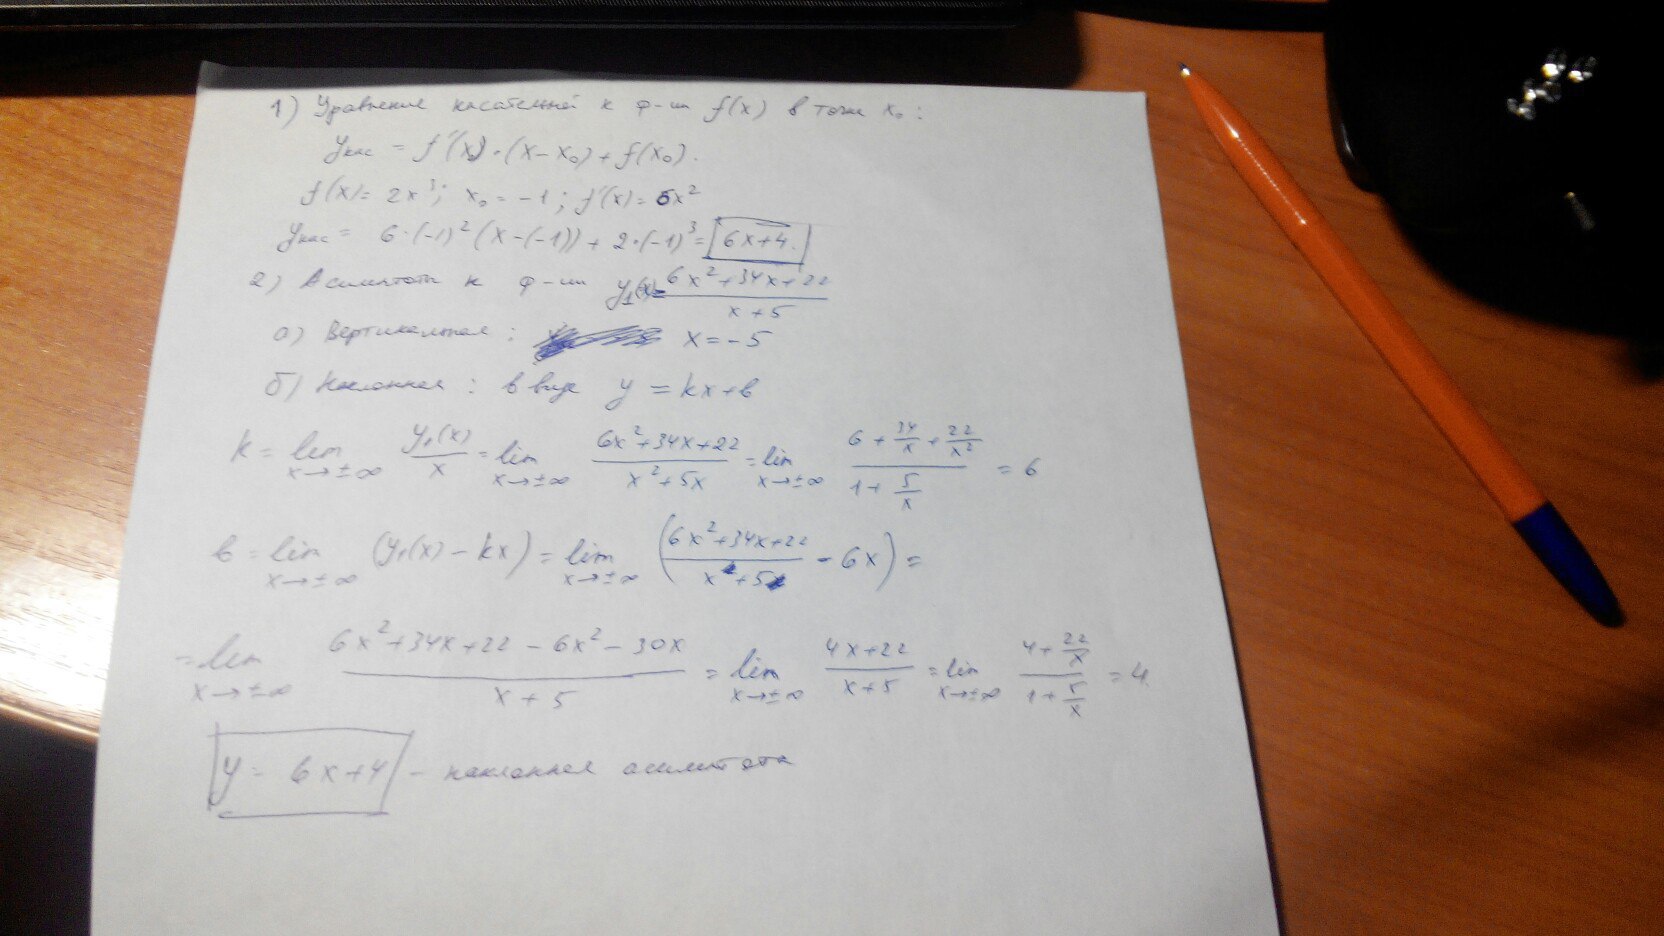 1) Уравнение касательной к ф-ии f(x) в точке x₀:
yкас = f'(x₀)·(x-x₀)+f(x₀).
f(x)= 2x³; x₀= -1; f'(x)= 6x²
yкас= 6·(-1)²(x-(-1))+2·(-1)³= 6x+4.
2) Асимптота к ф-ии y₁(x)= (6x²+34x+22)/(x+5)
а) Вертикальная: x=-5
б) Наклонная: в виде y = kx+b
k = lim x→±∞ y₁(x)/x = lim x→±∞ (6x²+34x+22)/(x²+5x) = lim x→±∞ (6+34/x+22/x²)/(1+5/x) = 6
b = lim x→±∞ (y₁(x)-kx) = lim x→±∞ ((6x²+34x+22)/(x+5) - 6x) =
= lim x→±∞ (6x²+34x+22-6x²-30x)/(x+5) = lim x→±∞ (4x+22)/(x+5) = lim x→±∞ (4+22/x)/(1+5/x) = 4.
y = 6x+4 - наклонная асимптота